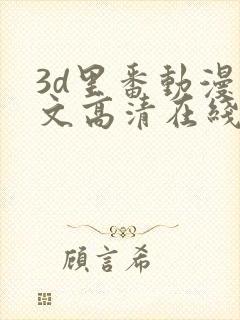 3d里番動漫
文高清在綫
顧言希